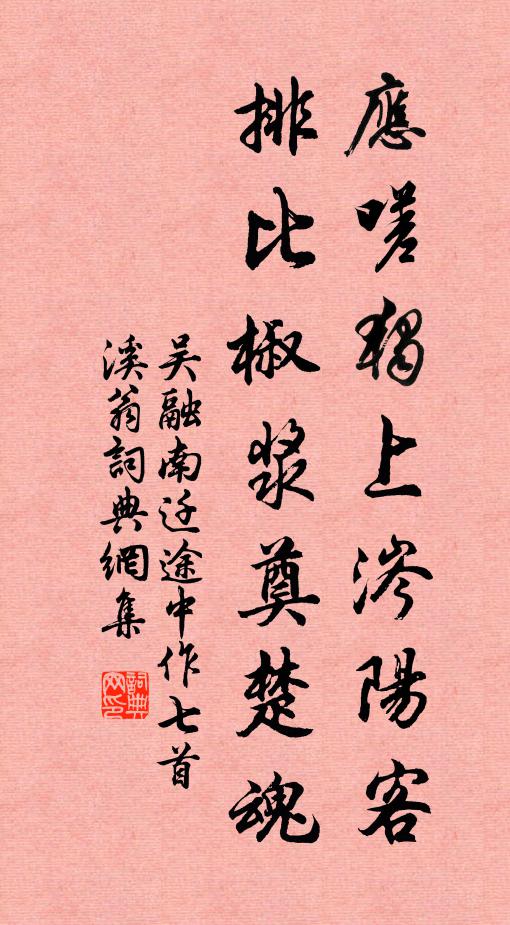 應嗟獨上涔陽客
排比椒漿奠楚魂
吳融南迁途中作七首
溪翁詞典網集
詞典网印